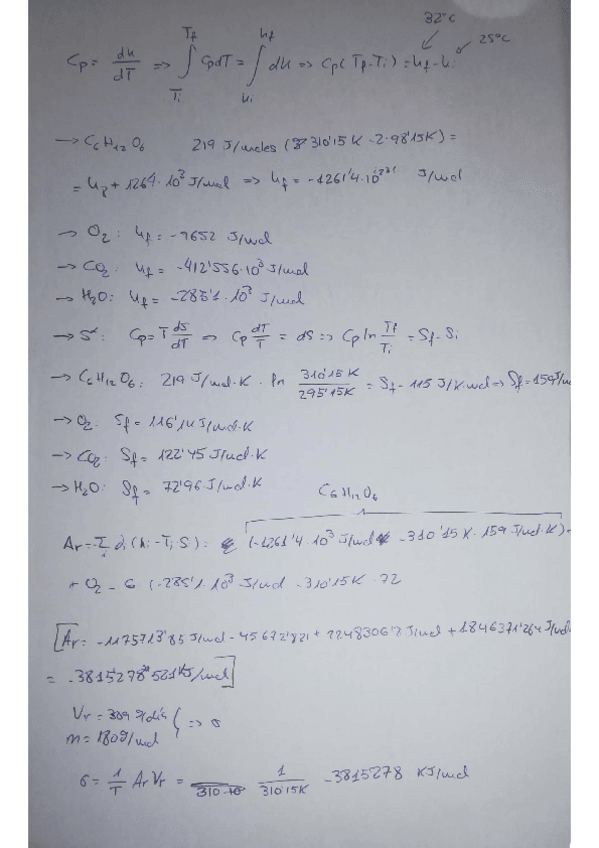 32°C
25°C
Cp = dh/dT => ∫ Ti Tf CpdT = ∫ hi hf dh => Cp(Tf - Ti) = hf - hi
-> C6H12O6 219 J/moles (310'15K - 2.98'15K) =
= h? + 1264·10³ J/mol => hf = -1261'4·10 J/mol
-> O2: hf = -7652 J/mol
-> CO2: hf = -412'556·10³ J/mol
-> H2O: hf = -285'1·10³ J/mol
-> S: Cp = T dS/dT => Cp dT/T = dS => Cp ln Tf/Ti = Sf - Si
-> C6H12O6: 219 J/mol·K · ln 310'15K/295'15K = Sf - 115 J/K·mol => Sf = 159 J/
-> O2: Sf = 116'14 J/mol·K
-> CO2: Sf = 122'45 J/mol·K
-> H2O: Sf = 72'96 J/mol·K
C6H12O6
Ar = -Σ (hi - Ti Si): (-1261'4·10³ J/mol - 310'15K · 159 J/mol·K) -
+ O2 - 6 (-285'1·10³ J/mol - 310'15K · 72
Ar = -1175713'85 J/mol - 45672'821 + J/mol + 1846371'264 J/
= J/mol
Vr = 309 g/día
m = 180g/mol
=> σ
σ = 1/T Ar Vr = 1/310'15K -3815278 KJ/mol